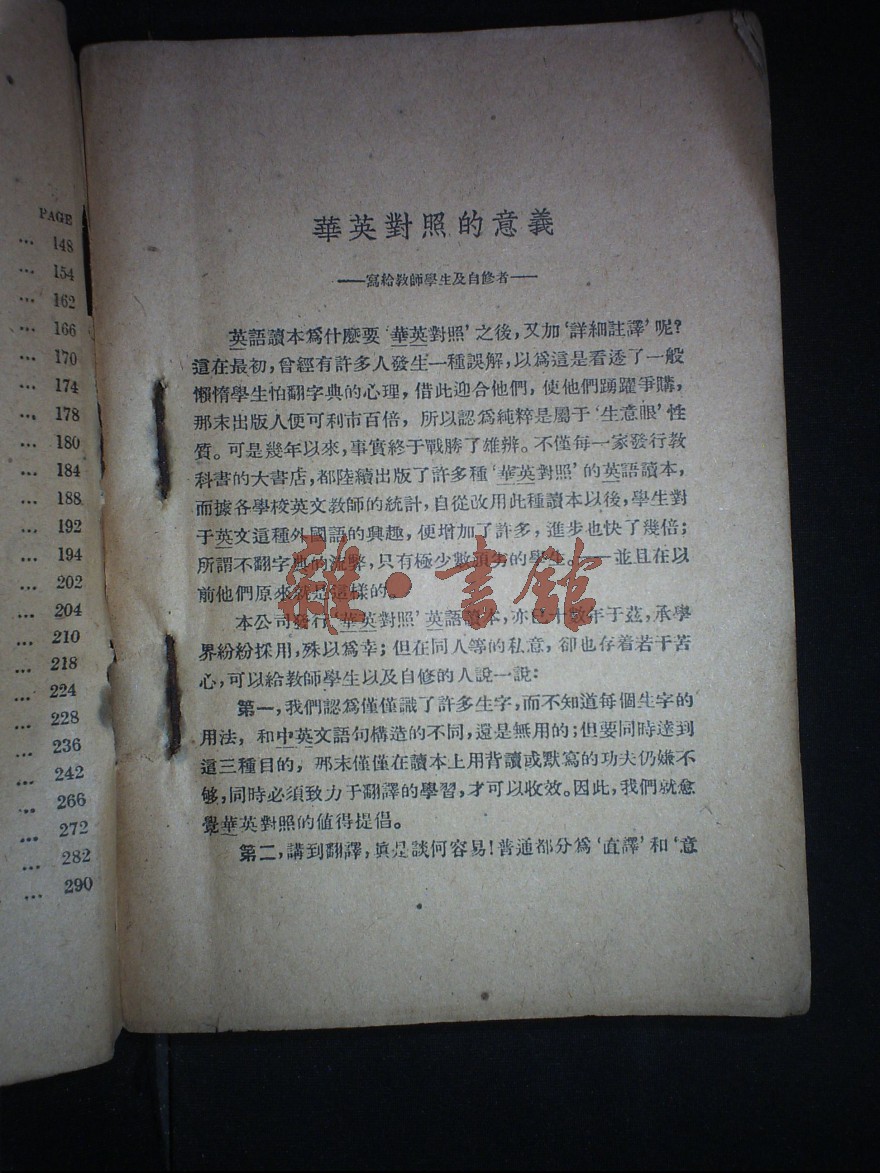 PAGE
... 148
... 154
... 162
... 166
... 170
... 174
... 178
... 180
... 184
... 188
... 192
... 194
... 202
... 204
... 210
... 218
... 224
... 228
... 236
... 242
... 266
... 272
... 282
... 290
華英對照的意義
——寫給教師學生及自修者——
英語讀本爲什麽要‘華英對照’之後，又加‘詳細註譯’呢？
這在最初，曾經有許多人發生一種誤解，以爲這是看透了一般
懶惰學生怕翻字典的心理，借此迎合他們，使他們踴躍爭購，
那末出版人便可利市百倍，所以認爲純粹是屬于‘生意眼’性
質。可是幾年以來，事實終于戰勝了雄辨。不僅每一家發行教
科書的大書店，都陸續出版了許多種‘華英對照’的英語讀本，
而據各學校英文教師的統計，自從改用此種讀本以後，學生對
于英文這種外國語的興趣，便增加了許多，進步也快了幾倍；
所謂不翻字典的流弊，只有極少數頑劣的學生。——並且在以
前他們原來就是這樣的。
本公司發行‘華英對照’英語讀本，亦已十數年于茲，承學
界紛紛採用，殊以爲幸；但在同人等的私意，卻也存着若干苦
心，可以給教師學生以及自修的人說一說：
第一，我們認爲僅僅識了許多生字，而不知道每個生字的
用法，和中英文語句構造的不同，還是無用的；但要同時達到
這三種目的，那末僅僅在讀本上用背讀或默寫的功夫仍嫌不
够，同時必須致力于翻譯的學習，才可以收效。因此，我們就愈
覺華英對照的值得提倡。
第二，講到翻譯，眞是談何容易！普通都分爲‘直譯’和‘意
雜·書館